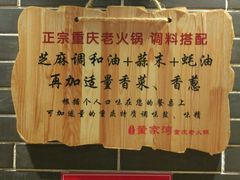 正宗重庆老火锅 调料搭配
芝麻调和油+蒜末+蚝油
再加适量香菜、香葱
根据个人口味在您的餐桌上
可加适量的重庆特质调味盐、味精
董家湾 重庆老火锅